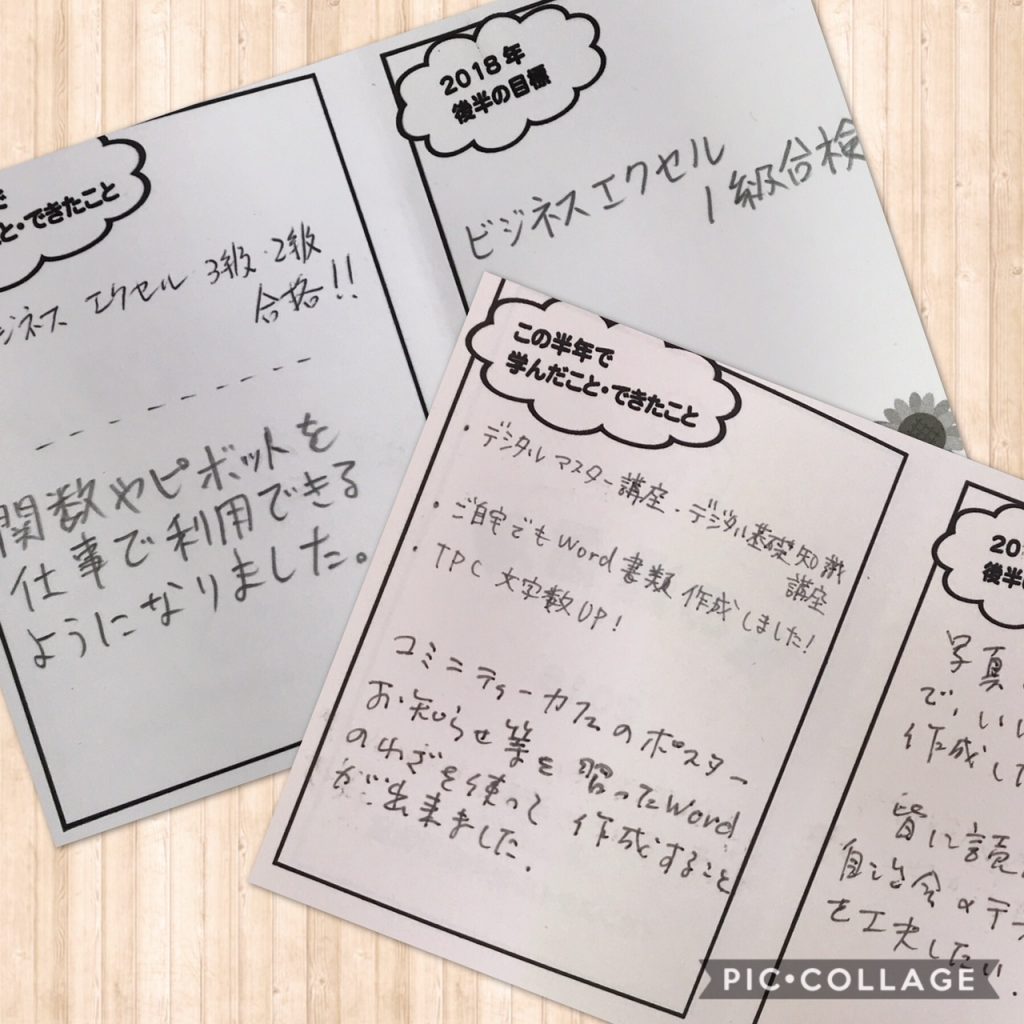 で
と・できたこと
ジネス エクセル 3級・2級
合格!!
関数やピボットを
仕事で利用できる
ようになりました。
2018年
後半の目標
ビジネスエクセル
1級合検
この半年で
学んだこと・できたこと
・デジタルマスター講座・デジタル基礎知識
講座
・ご自宅でもWord書類作成しました!
・TPC 文字数UP!
コミニティーカフェのポスター
お知らせ等を習ったWord
のわざを使って作成すること
が出来ました。
20
後半の
写真
で、いい
作成した
皆に読
自治会の
を工夫したい.
PIC•COLLAGE